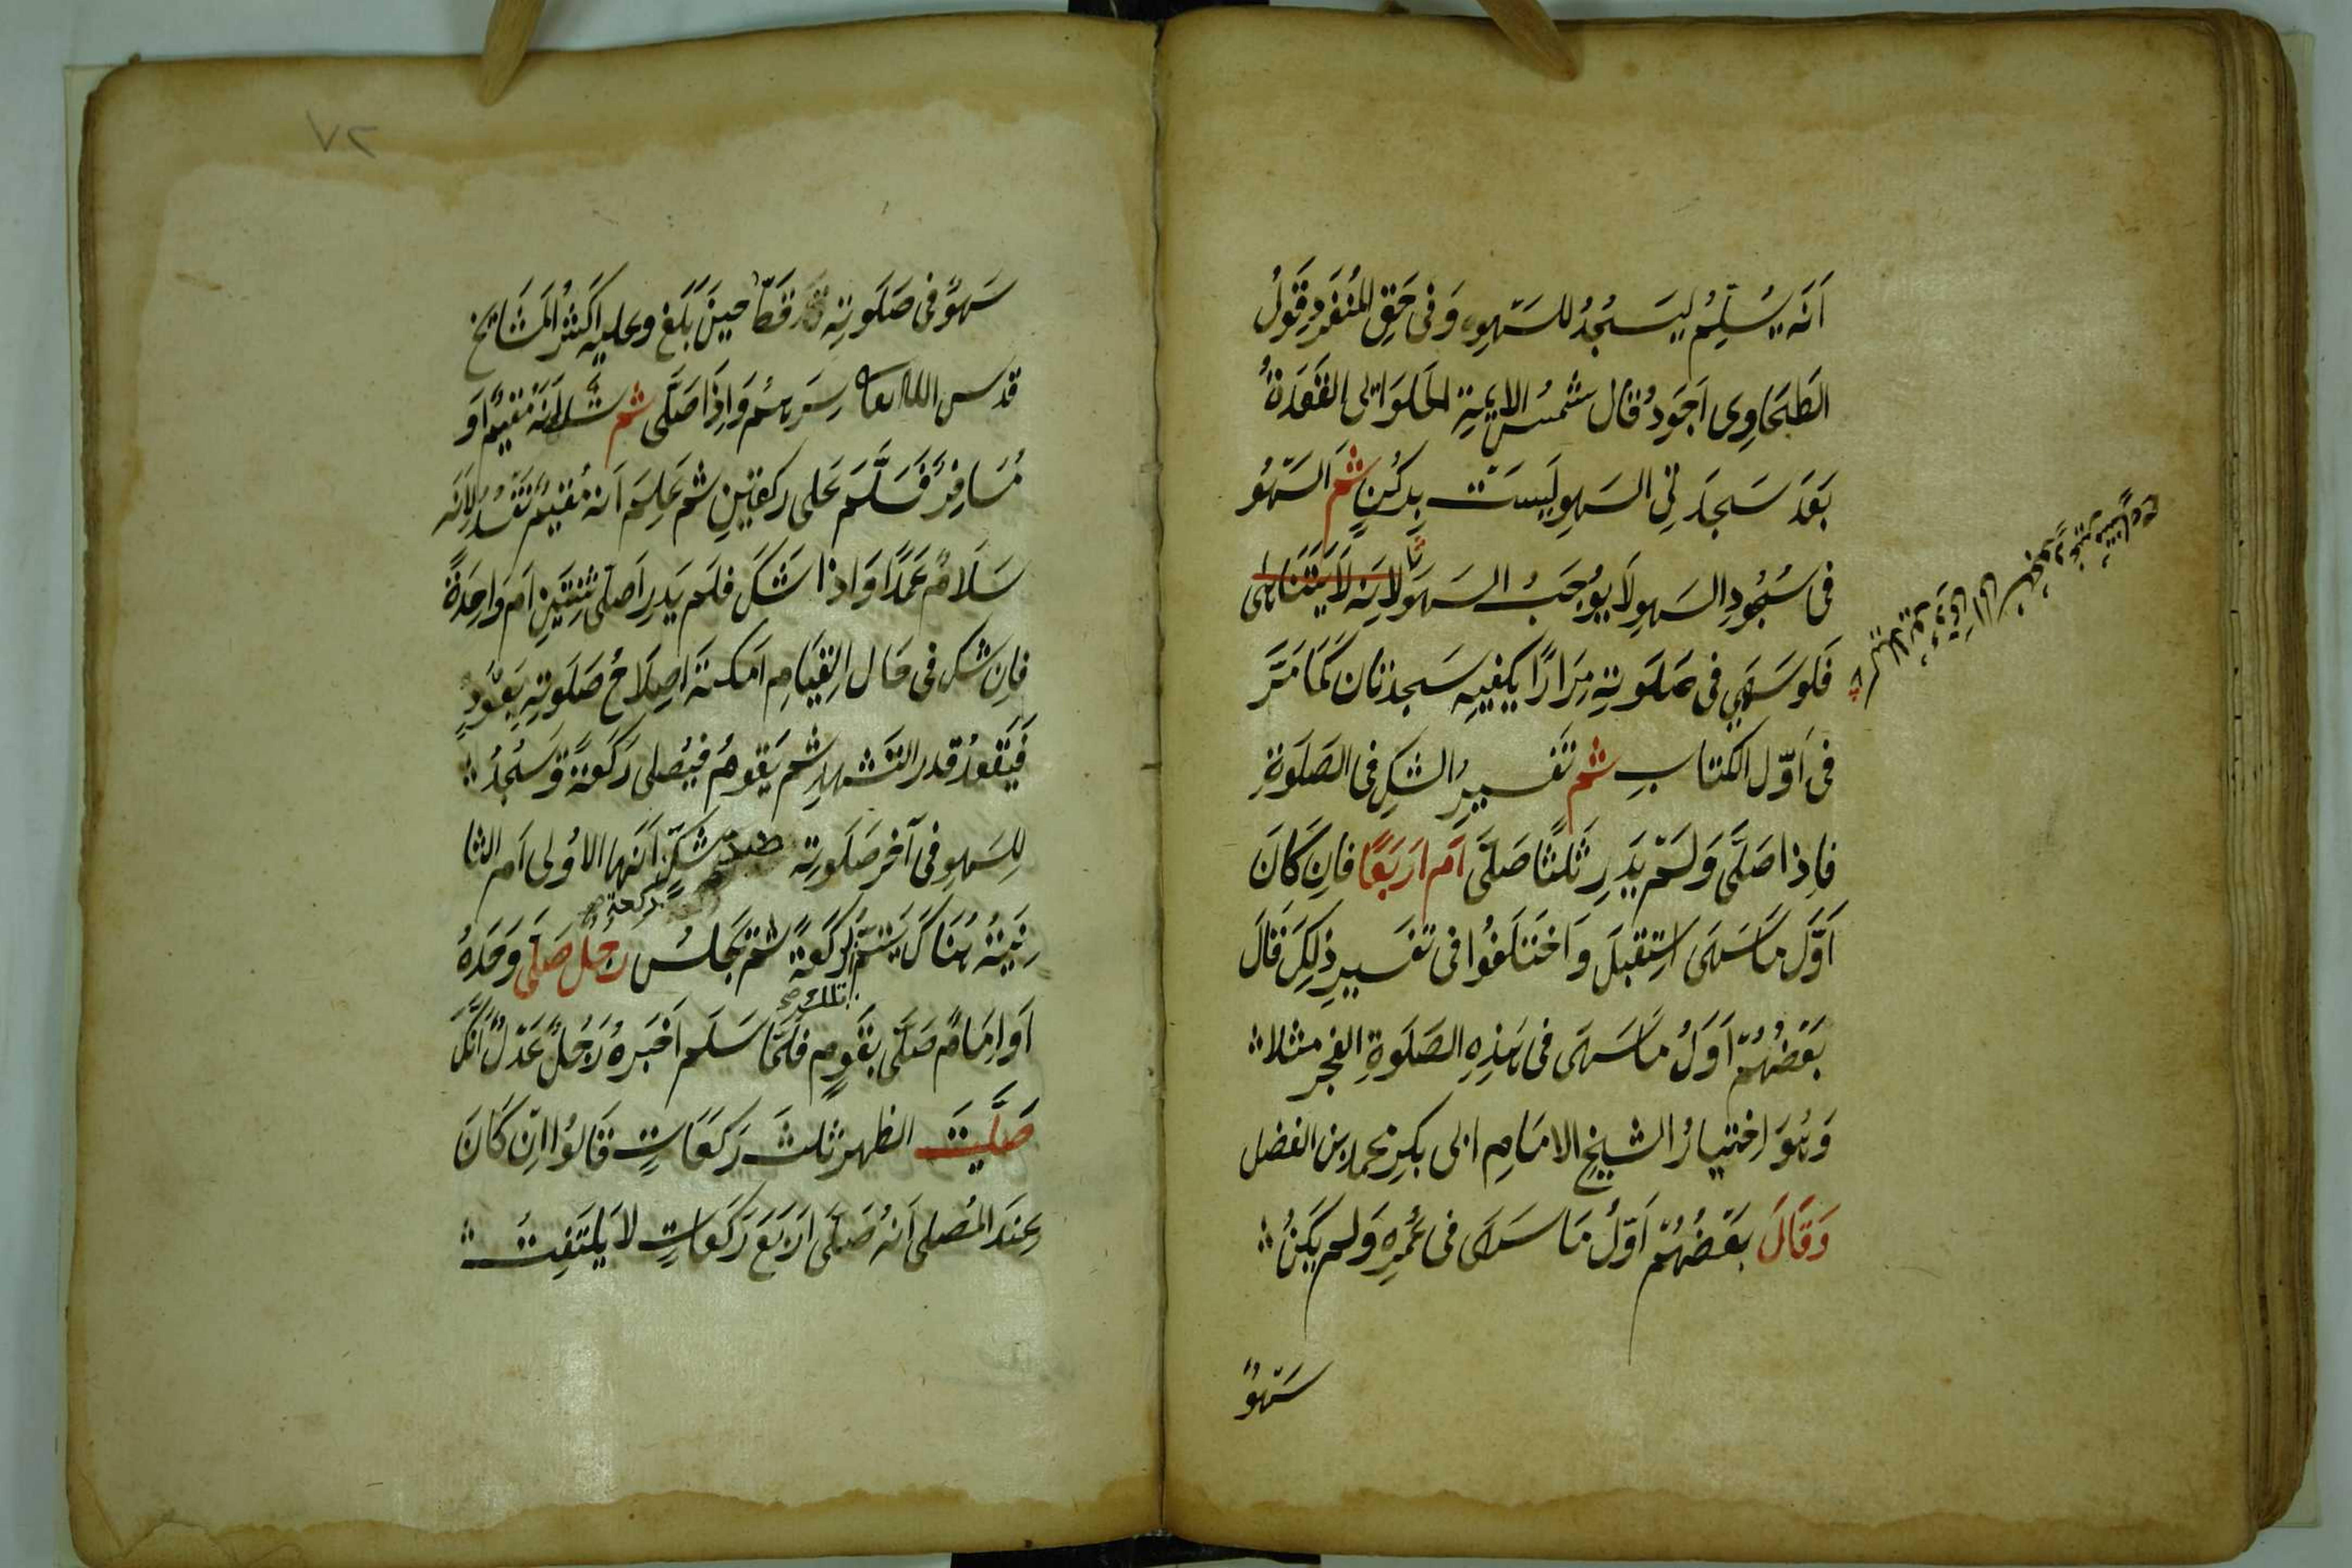 اَنَّه يُسَلِّمُ لِيَسجُدُ للسَّهوِ وَفى حَقِّ المُنفَرِدِ قَولُ
الطَّحَاوِى اَجوَدُ قال شمسُ الايمةِ الحلوَانى القَعدَةُ
بَعدَ سَجدَتىِ السَهوِ لَيسَت بِركُنٍ ثم السَهوُ
فى سُجُودِ السَهوِ لَا يُوجبُ السَهوَ لانه لَا يَتَنَاهى
كيلا يودّى الى
فَلَو سَهَى فى صَلَوتِهِ مِرَارًا يكفِيهِ سَجدتان كَمَا مَرَّ
فى اَوّل الكتابِ ثم تَفسِيرُ الشكِ فى الصَلَوةِ
فاِذا صَلَّى وَلَم يَدرِ ثَلثًا صَلَّى اَم اَربَعًا فاِن كَانَ
اَوَّلَ مَا سَهَى اِستقبلَ وَاختَلَفُوا فى تفسيرِ ذلِكَ قالَ
بَعضُهُم اَوَلُ مَا سَهَى فى هَذِهِ الصَلَوةِ الفجر مثلا
وَهُوَ اِختيارُ الشيخِ الامَامِ ابى بكرِ محمد بن الفضل
وَقَالَ بَعضُهُم اَوّلُ مَا سَهَى فى عُمرِهِ وَلم يَكُن
سَهوٌ
٧٢
سَهوٌ فى صَلَوتِهِ قَط حِينَ بَلَغ وعليه اكثرُ المَشَايخ
قدس الله تعالى سِرَهُم وَاِذَا صَلَّى ثم شك انه مُقيمٌ اَو
مُسَافِرٌ فَسَلَّمَ عَلى ركعتَينِ ثم عَلِمَ اَنه مُقيمٌ تفسُد لاَِنَه
سَلَامُ عَمدًا وَاذا شَكَ فلَم يَدرِ اَصلى ثِنتَينِ اَم وَاحِدَةً
فاِن شك فى حَال القِيَامِ اَمكنَهَ اِصلَاحُ صَلَوتِهِ بِقُعُودٍ
فَيَقعُدُ قدر التَشهدِ ثم يَقومُ فيُصلى رَكعَةً وَ يَسجُدُ
لِلسَهوِ فى آخر صَلَوتِه شكّ اَنَها الاُولى اَم الثا
نِيَةُ هُنَاكَ يَتِمُّ الركعةَ ثم يَجلسُ رَجُل صَلّى وَحدَهُ
ركعة صح
اَو اِمَامٌ صَلَّى بقَومٍ فلَمَا سَلَم اَخبَرهُ رَجُلٌ عَدلٌ اَنَّكَ
تلك صح
صَلَّيتَ الظهرَ ثلثَ رَكعَاتٍ قَالُوا اِن كَانَ
عِندَ المُصلى اَنهُ صَلَى اَربَعَ رَكعَاتٍ لَا يَلتَفِتُ